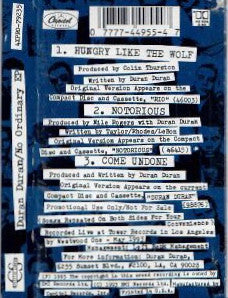 Capitol
0 7777-44955-4 7
4XPRO-79235
Duran Duran/No Ordinary EP
1. HUNGRY LIKE THE WOLF
Produced by Colin Thurston
Written by Duran Duran
Original Version Appears on the
Compact Disc and Cassette, "RIO" (46003)
2. NOTORIOUS
Produced by Nile Rodgers with Duran Duran
Written by Taylor/Rhodes/LeBon
Original Version Appears on the Compact
Disc and Cassette, "NOTORIOUS" (46415)
3. COME UNDONE
Produced and Written by Duran Duran
Original Version Appears on the current
Compact Disc and Cassette, "DURAN DURAN"
Promotional Use Only/Not for Sale
Songs Repeated On Both Sides For Your
Convenience
Recorded Live at Tower Records in Los Angeles
by Westwood One - May 1993
Management: Management
For More Information: Duran Duran,
6255 Sunset Blvd., LA, CA